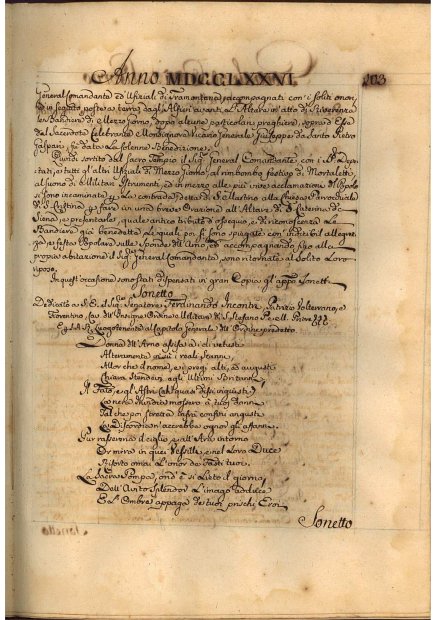 Anno MDCCLXXVI. 203
General Comandante ed Ufiziali di Tramontana accompagnati con i soliti onori
ed in seguito poste a terra dagli Alfieri avanti L'Altare in atto di Riverenza
le Bandiere di Mezzo Giorno, dopo alcune particolari preghiere, sopra d'Esse
dal Sacerdote Celebrante Monsignore Vicario Generale Giuseppe de Santo Pietro
Gaspari, fu data La Solenne Benedizione.
Quindi sortito dal Sacro Tempio il Sig. General Comandante con i
tati, e tutti gl'altri Ufiziali di Mezzo Giorno, al rimbombo festivo di Mortaletti,
al suono di Militari Istrumenti, ed in mezzo alle più vive acclamazioni del Popolo
si sono incaminati p. La contrada detta di Sallustino alla Chiesa Parrocchiale
di S. Cristina p. fare in una breve Orazione all'Altare di S. Caterina da
Siena, e presentarle, quale antico tributo d'ossequio, e di riconoscenza Le
Bandiere già benedette Le quali poi si sono spiegate con indicibil allegrez-
za, e festa Popolare sulle Sponde dell'Arno, ed accompagnando fino alla
propria abitazione il Sig. General Comandante, sono ritornate al Solito Loro
riposo.
In quest'occasione sono stati dispensati in gran Copia gl'appo Sonetti
Sonetto
Dedicato a S. E. il Sig. Senatore Ferdinando Incontri Patrizio Volterrano, e
Fiorentino, Cav. dell'Insigne Ordine Militare di S. Stefano P. e M. Priore
Luogotenente al Capitolo Generale dell'Ordine predetto
Donna dell'Arno assisa ai dì vetusti
Alteramente su i reali Scanni,
Allor che il nome, e i pregi alti, ed augusti
Chiara Stendea agli Ultimi Britanni
Il Fato, e gl'Astri
nera mossero a tuoi Danni
Tal che poi stretta infra confini angusti
La Discordia n'accrebbe ognor gli affanni.
Pur rasserena il ciglio, e all'Arno intorno
Or mira in quei Vessilli, e nel Lor Duce
Risorto omai L'onor de Fasti tuoi.
La Sacra Pompa, ond'è sì Lieto il giorno
Dell'Avito Splendor L'imago adduce
E L'Ombre appaga De tuoi prischi Eroi
Sonetto